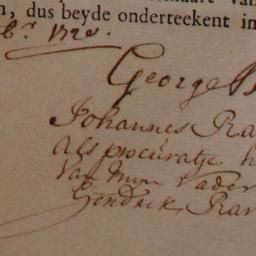 n, dus beyde onderteekent in
b.r 1728.
George
Johannes Ra
als procuratje h
Van Mijn Vader
Hendrik Rav